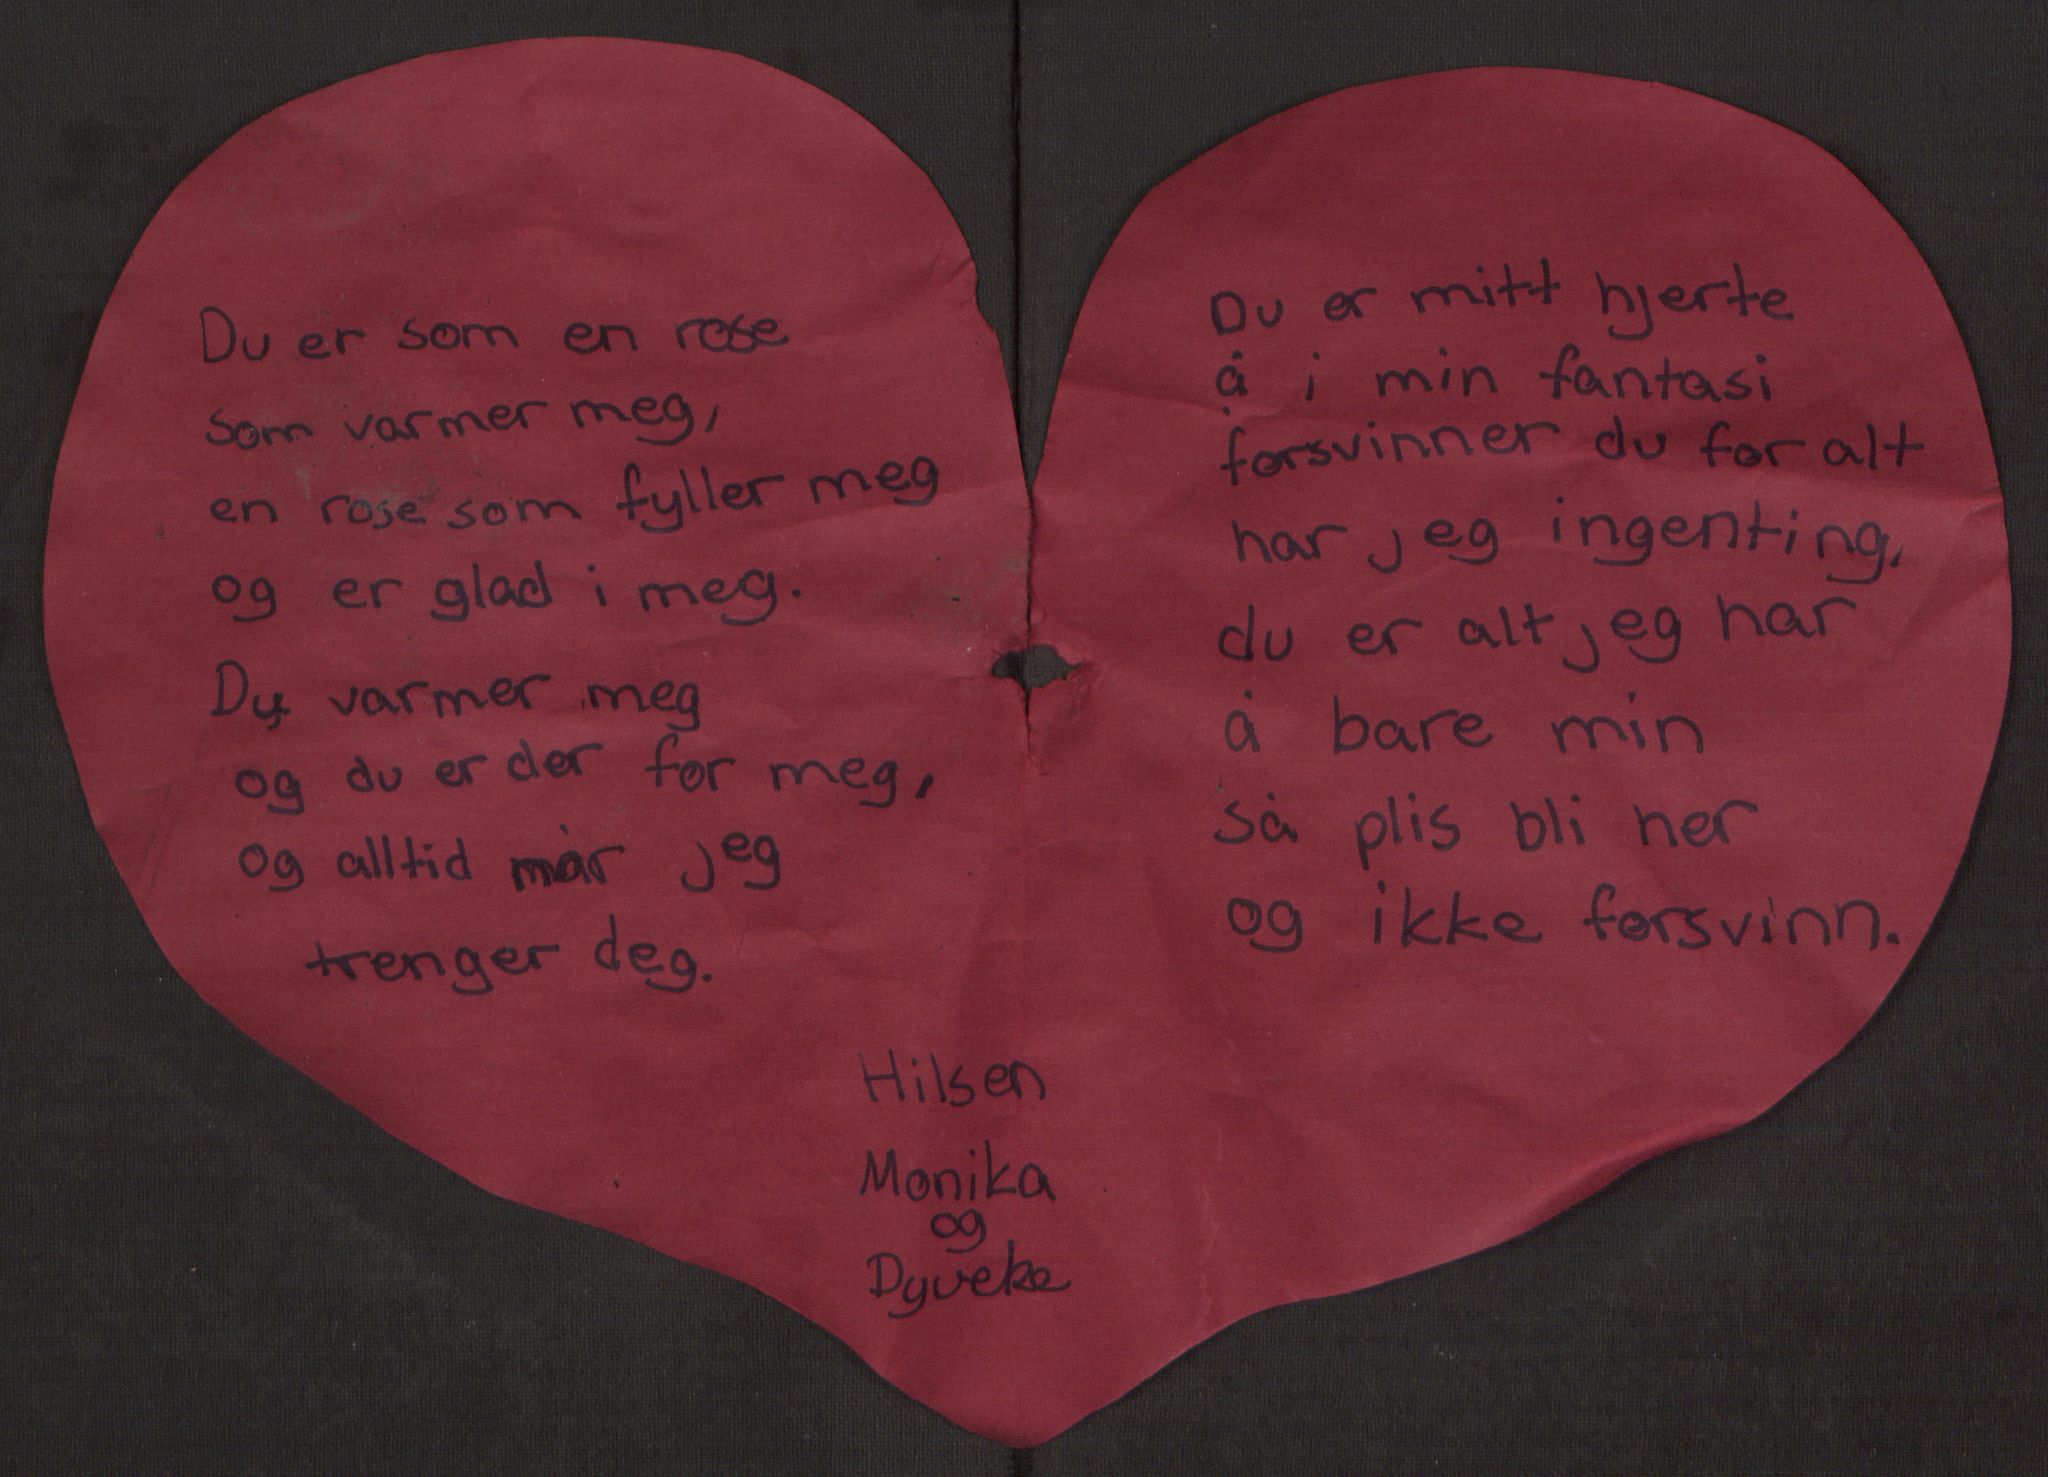 Du er som en rose
som varmer meg,
en rose som fyller meg
og er glad i meg.
Du varmer meg
og du er der for meg,
og alltid når jeg
trenger deg.
Du er mitt hjerte
å i min fantasi
forsvinner du for alt
har jeg ingenting,
du er alt jeg har
å bare min
så plis bli her
og ikke forsvinn.
Hilsen
Monika
og
Dyveke